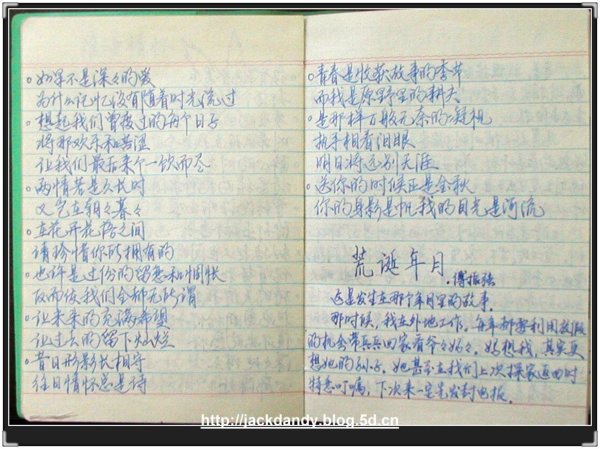 ○如果不是深々的爱
为什么记忆没有随着时光流过
○想起我们曾度过的每个日子
将那欢乐和苦涩
让我们最后来个一饮而尽
○两情若是久长时
又岂在朝々暮々
○在花开花落之间
请珍惜你所拥有的
○也许是过份的留恋和惆怅
反而使我们会称无所谓
○让未来的充满希望
让过去的留下灿烂
○昔日形影长相守
往日情怀总是诗
○青春是收获故事的季节
而我是原野里的耕夫
○是那样万般无奈的凝视
执手相看泪眼
明日将远别天涯
○送你的时候正是金秋
你的身影是帆我的目光是河流
荒诞年月
·傅振强
这是发生在那个年月里的故事。
那时候，我在外地工作，每年都要利用放假
的机会带兵兵回家看爷々奶々。妈想我，其实更
想她的孙子。她甚至在我们上次探家返回时
特意叮嘱，下次来一定先发封电报。
http://jackdandy.blog.5d.cn